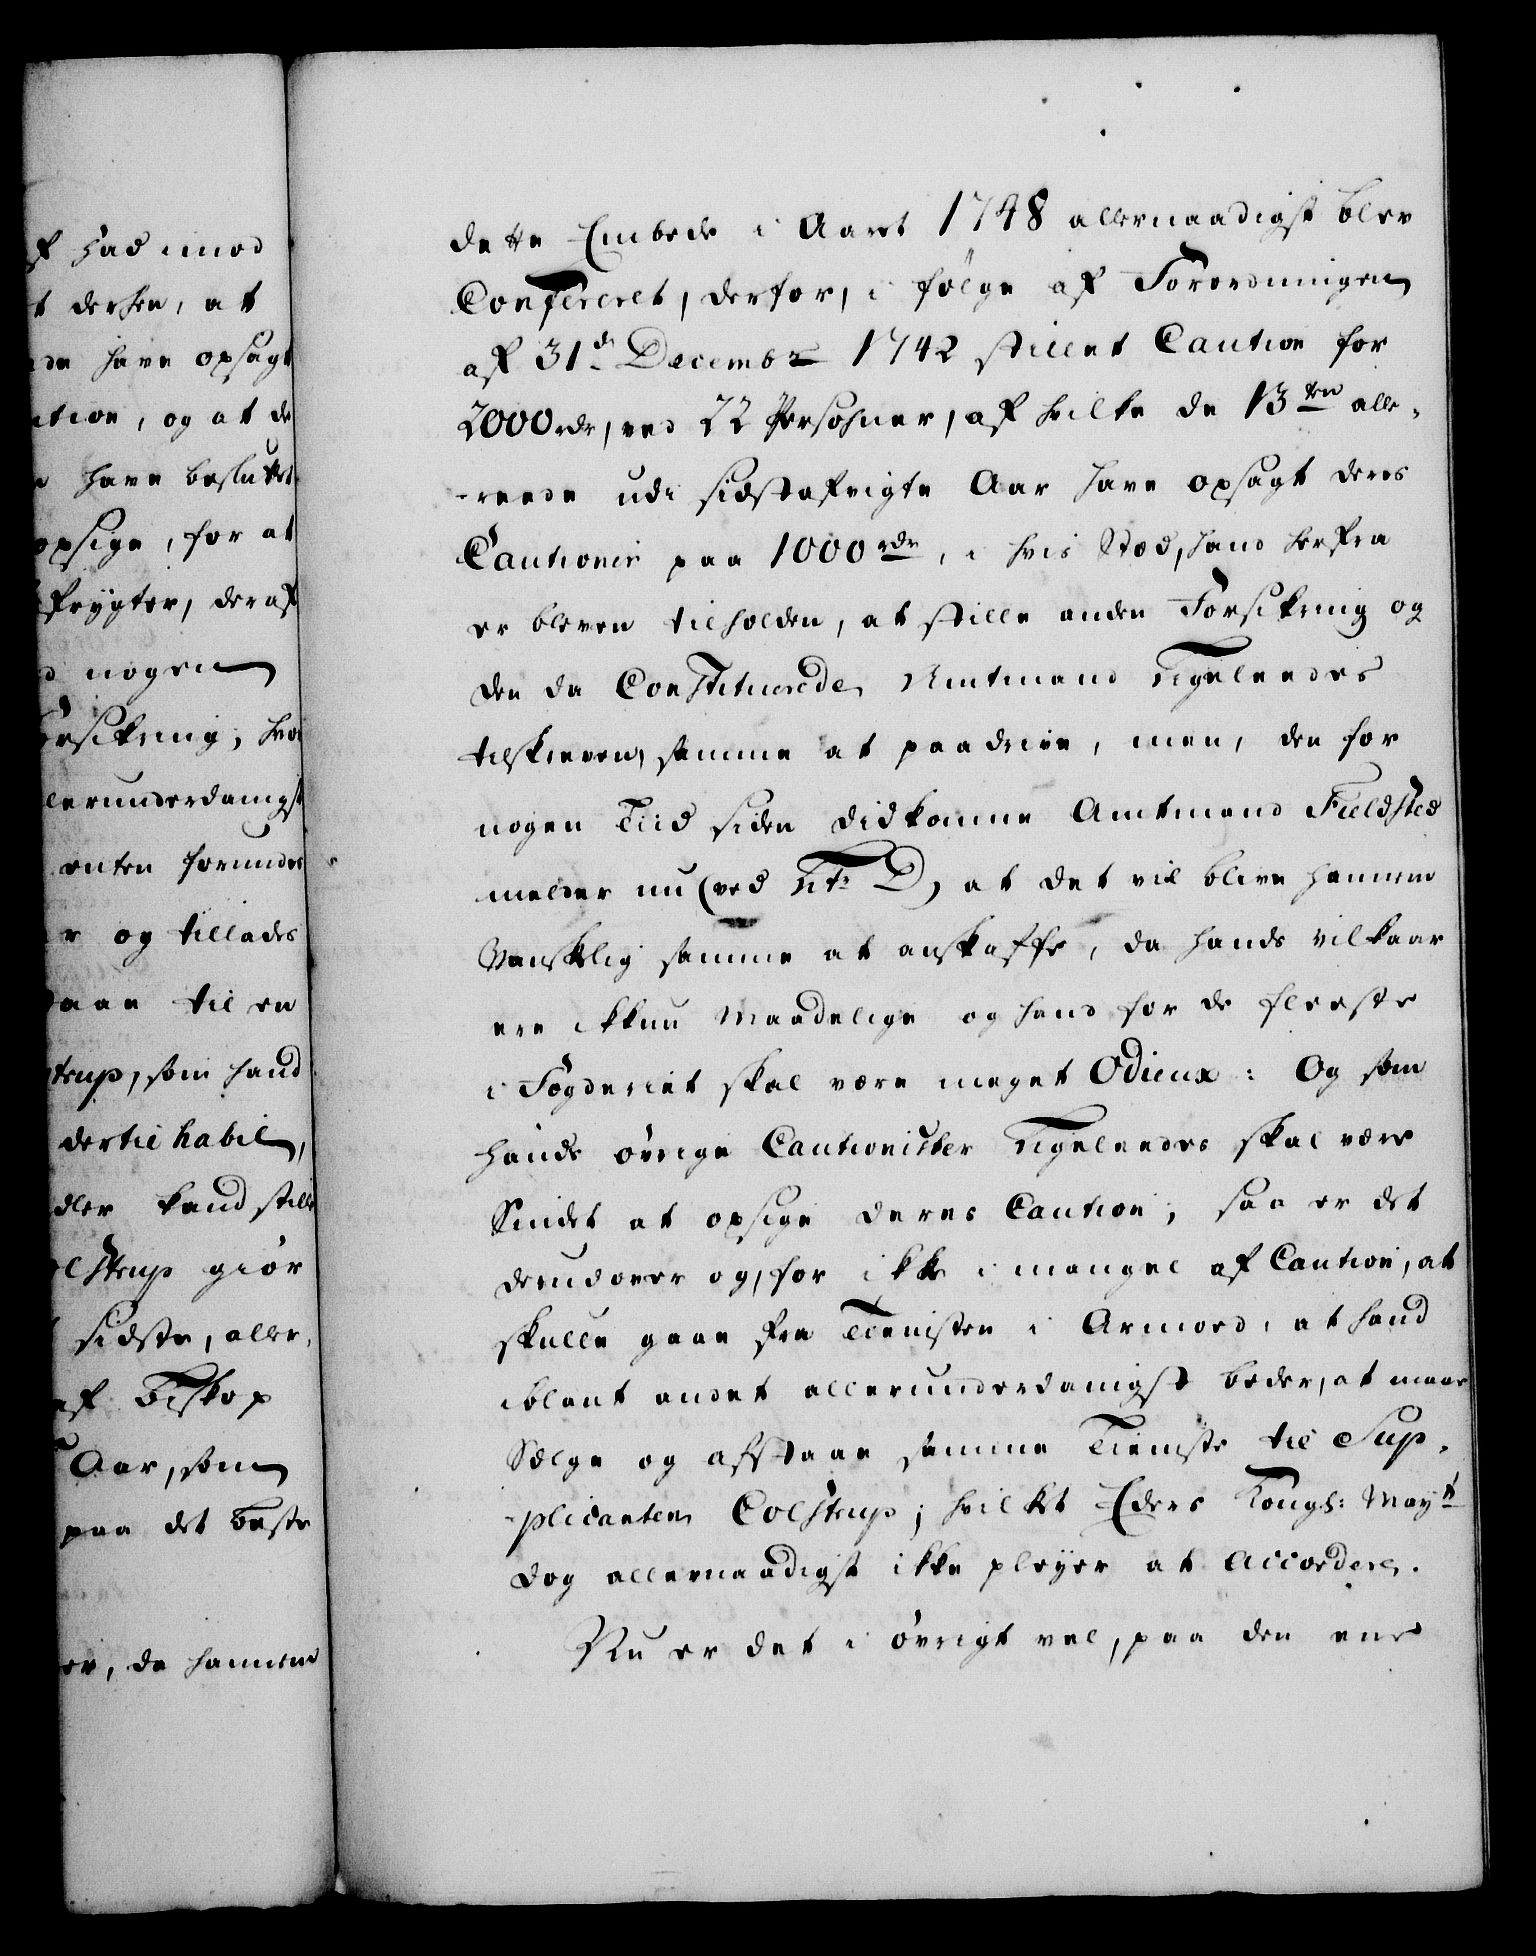 f Had imod
t derhen, at
have opsagt
ation, og at de
have besluttet
opsige, for at
frygter, deraf
nogen
orsikring, hvo
lerunderdanigst
enten forundes
r og tillades
taae til en
strup, som hand
dertil habil,
dler kand stille
olstrup giör
sidste, aller-
af Biskop
Aar, som
paa det beste
er, da hannem
dette Embede i Aaret 1748 allernaadigst blev
Confereret, derfor, i fölge af Forordningen
af 31de Decembr 1742 stillet Caution for
2000 rdr, ved 22 Persohner, af hvilke de 13ten alle-
-reede udi sidstafvigte Aar have opsagt deres
Cautioner paa 1000 rdr, i hvis Stæd, hand herfra
er bleven tilholden, at stille anden Forsikring og
den da Constituerede Amtmand ligeleedes
tilskreven, samme at paadrive, men, den for
nogen Tiid siden didkomne Amtmand Fieldsted
melder nu (ved Litr: D) at det vil blive hannem
Vanskelig samme at anskaffe, da hands vilkaar
ere ikkun Maadelige og hand for de fleeste
i Fogderiet skal være meget Odieux: Og som
hands övrige Cautionister ligeleedes skal være
Sindet at opsige deres Caution, saa er det
derudover og, for ikke i mangel af Caution, at
skulle gaae fra Tienisten i Armoed, at hand
iblant andet allerunderdanigst beder, at maae
Sælge og afstaae samme Tieniste til Sup-
-plicanten Colstrup; hvilket Eders Kongl: Mayt
dog allernaadigst ikke pleyer at accordere.
Nu er det i övrigt vel, paa den eene